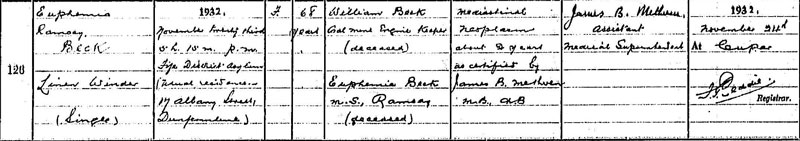 126
Euphemia
Ramsay
BECK
Linen Winder
(Single)
1932.
November Twenty third
5 h. 15 m. P.m.
Fife District Asylum
(usual residence
17 Albany Street,
Dunfermline)
F.
68
years
William Beck
Coal mine Engine Keeper
(deceased)
Euphemia Beck
m.s. Ramsay
(deceased)
Mediastinal
neoplasm
about 2 years
as certified by
James B. Methven
M.B. Ch.B
James B. Methven
assistant
medical Superintendent
1932.
November 24th
At Cupar
Registrar.